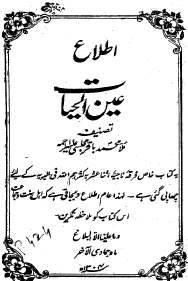 اطلاع
عین الحیات
تصنیف
ملا محمد باقر مجلسی علیہ الرحمہ
یہ کتاب خاص فرقہ ناجیہ اثنا عشریہ کثرہم اللہ فی البریہ کے لئے
چھاپی گئی ہے۔ لہذا عام اطلاع دیجاتی ہے کہ اہل سنت وجماعت
اس کتاب کو ملاحظہ نکریں۔
وما علینا الا البلاغ